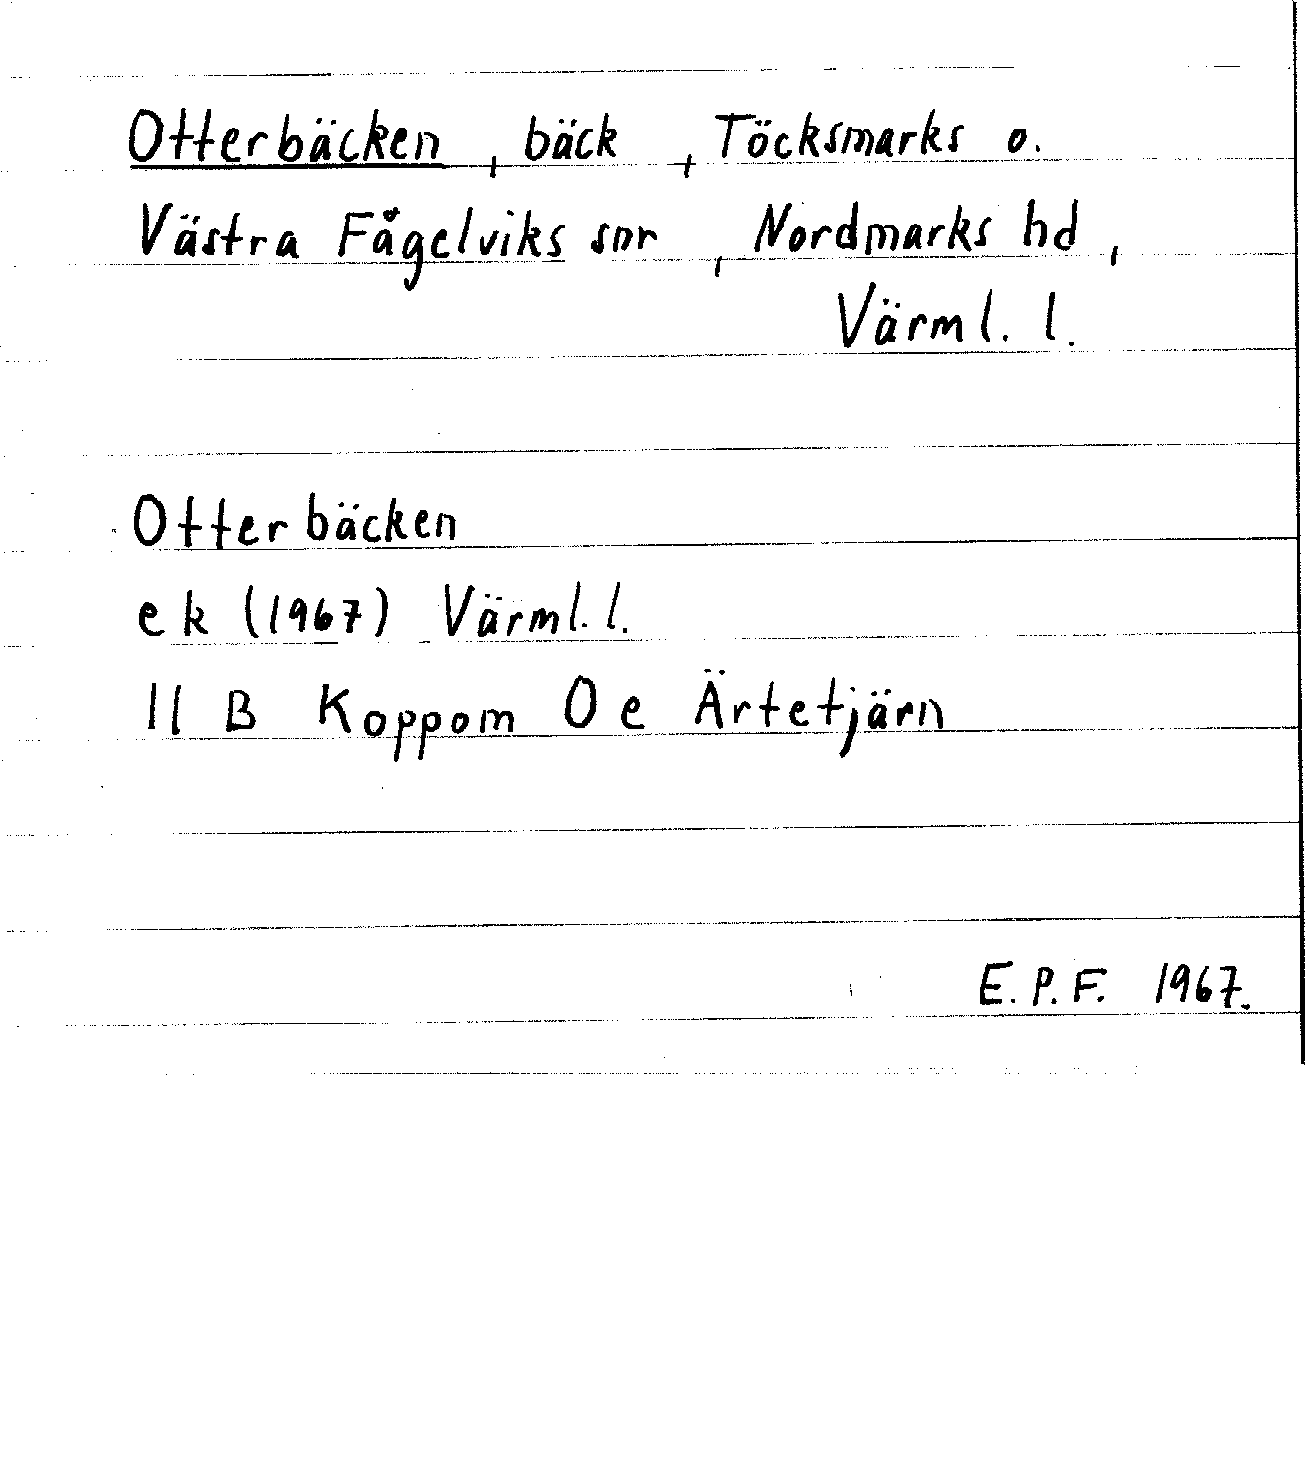 Otterbäcken, bäck, Töcksmarks o.
Västra Fågelviks snr, Nordmarks hd,
Värml. l.
Otterbäcken
ek (1967) Värml. l.
11 B Koppom 0 e Ärtetjärn
E. P. F. 1967.